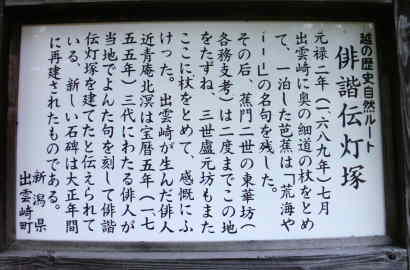 越の歴史自然ルート
俳諧伝灯塚
元禄二年(一六八九年)七月
出雲崎に奥の細道の杖をとめ
て、一泊した芭蕉は「荒海や
……」の名句を残した。
その后、蕉門二世の東華坊(
各務支考)は二度までこの地
をたずね、三世盧元坊もまた
ここに杖をとめて、感慨にふ
けった。出雲崎が生んだ俳人
近青庵北溟は宝暦五年(一七
五五年)三代にわたる俳人が
当地でよんた句を刻して俳諧
伝灯塚を建てたと伝えられて
いる、新しい石碑は大正年間
に再建されたものである。
新潟県
出雲崎町